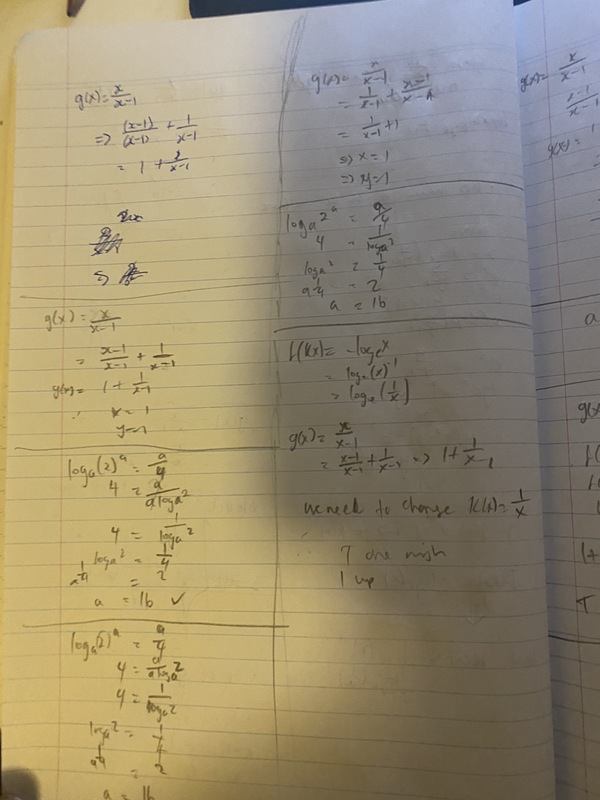 g(x) = x/(x-1)
=> (x-1)/(x-1) + 1/(x-1)
= 1 + 1/(x-1)
=>
g(x) = x/(x-1)
= (x-1)/(x-1) + 1/(x-1)
g(x) = 1 + 1/(x-1)
∴ x = 1
y = 1
log_a(2)^a = a/4
4 = a/(a log_a 2)
4 = 1/(log_a 2)
log_a 2 = 1/4
a^(1/4) = 2
a = 16 ✓
log_a(2)^a = a/4
4 = a/(a log_a 2)
4 = 1/(log_a 2)
log_a 2 = 1/4
a^(1/4) = 2
a = 16
g(x) = x/(x-1)
= 1/(x-1) + (x-1)/(x-1)
= 1/(x-1) + 1
=> x = 1
=> y = 1
log_a 2^a = a/4
4 = 1/(log_a 2)
log_a 2 = 1/4
a^(1/4) = 2
a = 16
= log_e (x)^-1
= log_e (1/x)
g(x) = x/(x-1)
= (x-1)/(x-1) + 1/(x-1) => 1 + 1/(x-1)
we need to change k(x) = 1/x
1 up
g(x) = x/(x-1)
(x-1)/(x-1)
g(x) =
a
g(x)